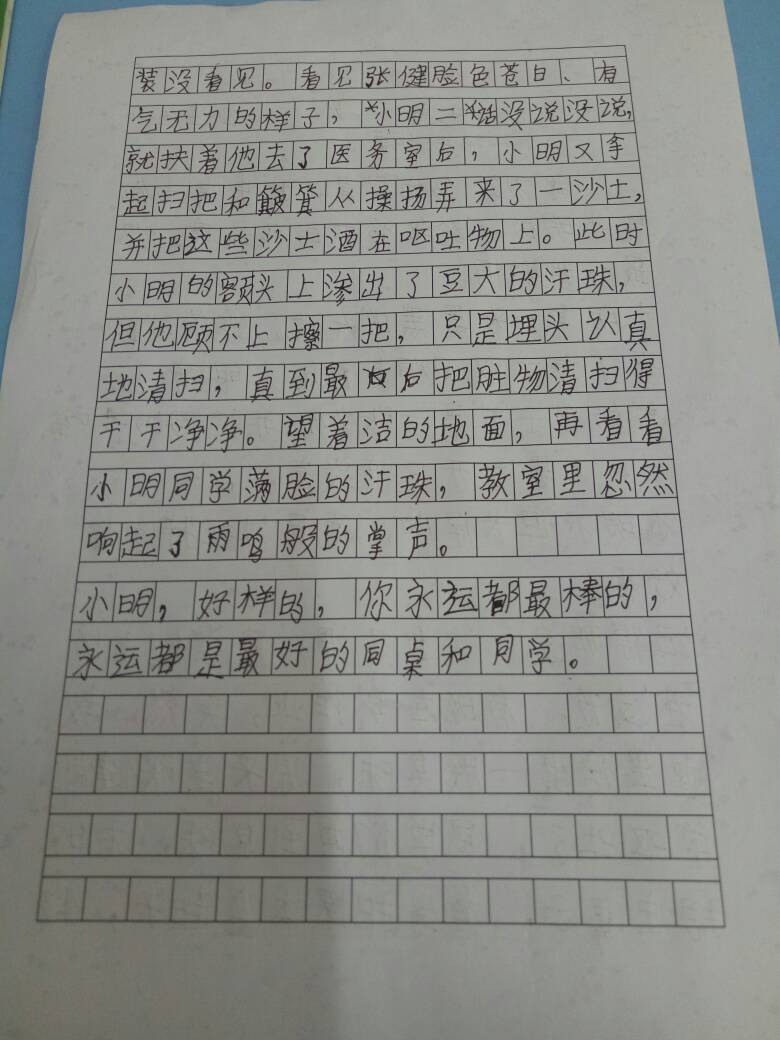 装没看见。看见张健脸色苍白、有
气无力的样子，小明二话没说没说，
就扶着他去了医务室后，小明又拿
起扫把和簸箕从操扬弄来了一沙土，
并把这些沙土酒在呕吐物上。此时
小明的额头上渗出了豆大的汗珠，
但他顾不上擦一把，只是埋头认真
地清扫，真到最后把脏物清扫得
干干净净。望着洁的地面，再看看
小明同学满脸的汗珠，教室里忽然
响起了雨鸣般的掌声。
小明，好样的，你永运都最棒的，
永运都是最好的同桌和同学。